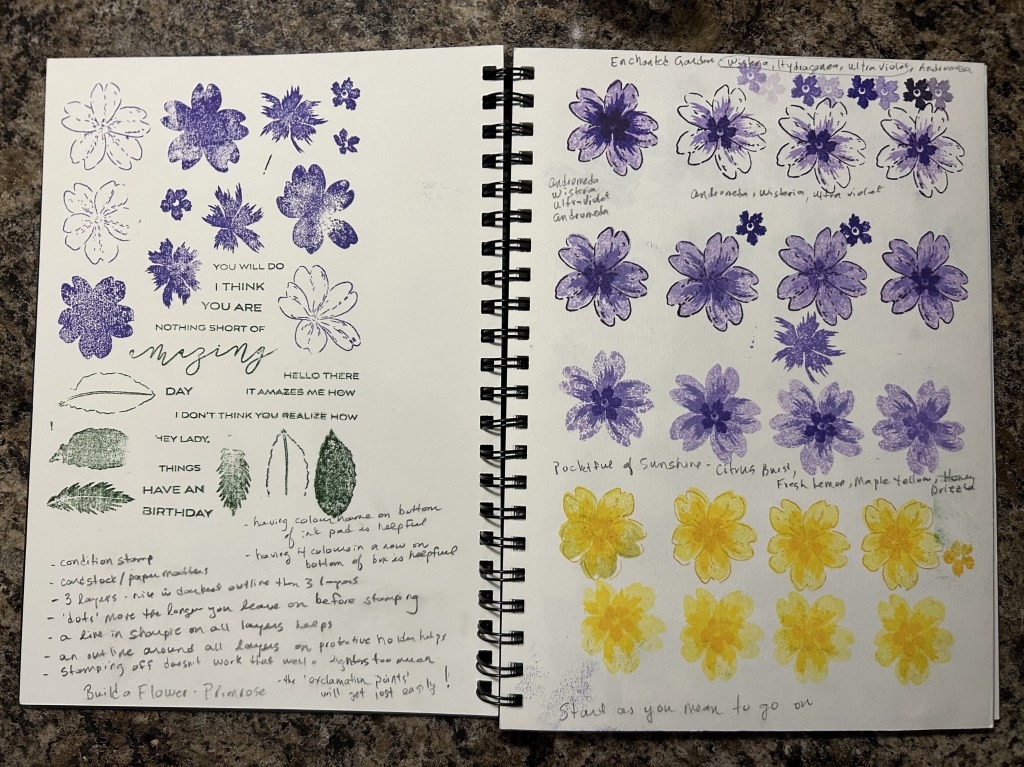 YOU WILL DO
I THINK
YOU ARE
NOTHING SHORT OF
amazing
HELLO THERE
DAY
IT AMAZES ME HOW
I DON'T THINK YOU REALIZE HOW
!
HEY LADY,
THINGS
HAVE AN
BIRTHDAY
- having colour name on bottom
of ink pad is helpful
- having 4 colours in a row on
bottom of box is helpful
- condition stamp
- cardstock / paper matters
- 3 layers - nice is darkest outline then 3 layers
- 'dots' more the longer you leave on before stamping
- a line in sharpie on all layers helps
- an outline around all layers on protective holder helps
- stamping off doesn't work that well - lightens too much
- the 'exclamation points'
will get lost easily!
Build a Flower - Primrose
Enchanted Garden Wisteria, Hydrangea, Ultra Violet, Andromeda
Andromeda
Wisteria
Ultraviolet
Andromeda
Andromeda, Wisteria, Ultra violet
Pocketful of Sunshine - Citrus Burst,
Fresh Lemon, Maple Yellow, Honey
Drizzle
Start as you mean to go on